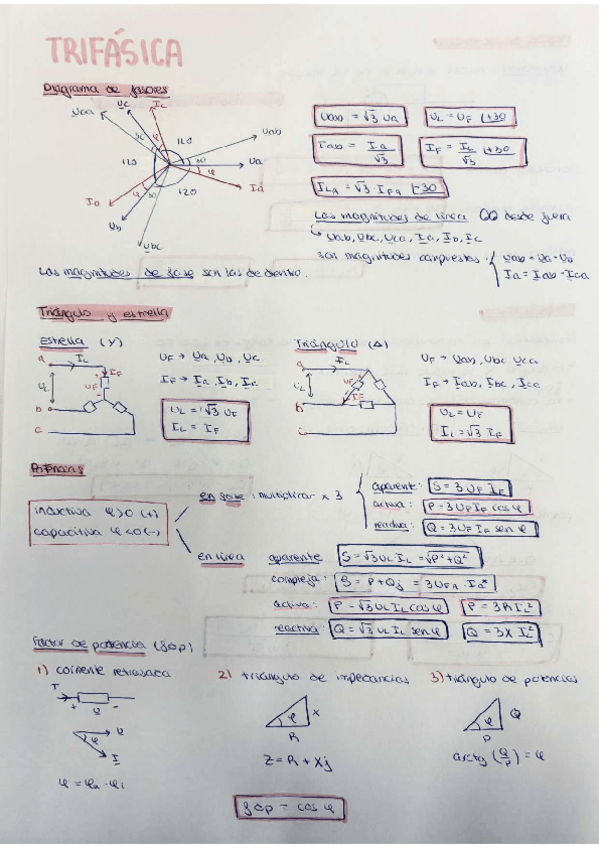 TRIFÁSICA
Diagrama de fasores
Uca
Uc
IL
Uab
Ua
Ia
Ib
Ub
Ubc
120
120
120
30
30
φ
φ
φ
Uab = √3 Ua
UL = UF ∟+30
Iab = Ia/√3
IF = IL/√3 ∟+30
ILa = √3 IFa ∟-30
Las magnitudes de línea desde fuera
↳ Uab, Ubc, Uca, Ia, Ib, Ic
son magnitudes compuestas
Uab = Ua - Ub
Ia = Iab - Ica
Las magnitudes de fase son las de dentro.
Triángulo y estrella
estrella (Y)
a
IL
IF
UL
UF
b
c
UF → Ua, Ub, Uc
IF → Ia, Ib, Ic
UL = √3 UF
IL = IF
Triángulo (Δ)
a
IL
UL
UF
IF
b
c
UF → Uab, Ubc, Uca
IF → Iab, Ibc, Ica
UL = UF
IL = √3 IF
Potencias
inductiva φ>0 (+)
capacitiva φ<0 (-)
en fase: multiplicar x 3
aparente: S = 3 UF IF
activa: P = 3 UF IF cos φ
reactiva: Q = 3 UF IF sen φ
en línea
aparente S = √3 UL · IL = √P² + Q²
compleja: S = P + Qj = 3 UFA · Ia*
activa: P = √3 UL IL cos φ P = 3 R IL²
reactiva: Q = √3 UL IL sen φ Q = 3 X IL²
Factor de potencia (fdp)
1) corriente retrasada
I
+ U -
U
φ
I
φ = φu - φi
2) triángulo de impedancias
φ
X
R
Z = R + Xj
3) triángulo de potencias
φ
Q
P
arctg (Q/P) = φ
fdp = cos φ